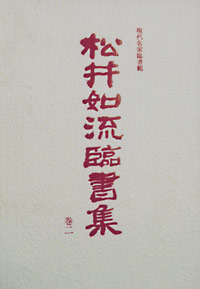 現代名家臨書範
松井如流臨書集
巻二